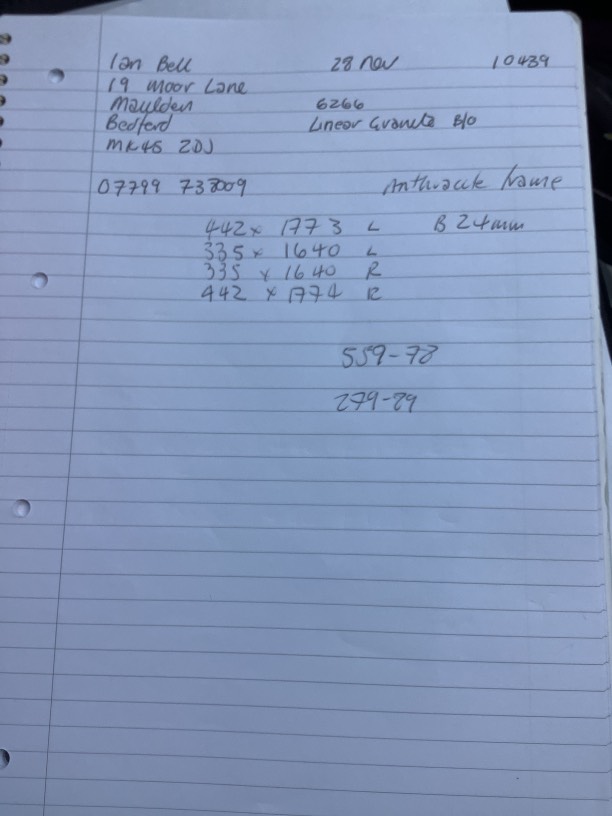 Ian Bell 28 Nov 10439
19 Moor Lane
Maulden 6266
Bedford Linear Granite B/O
MK45 2DJ
07799 738009 Anthracite frame
442 x 1773 L B 24mm
335 x 1640 L
335 x 1640 R
442 x 1774 R
559-78
279-89